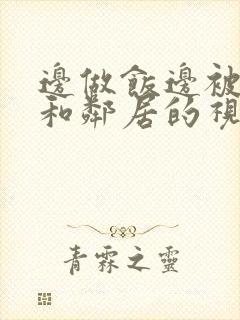 邊做飯邊被
和鄰居的視
青霖之靈